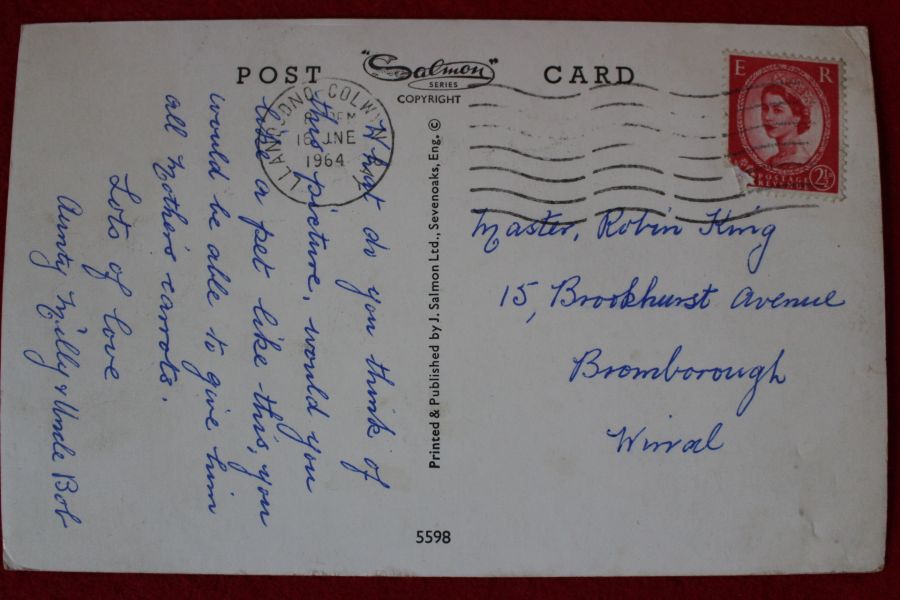 POST CARD
"Salmon"
SERIES
COPYRIGHT
E R
POSTAGE
REVENUE
2½D
LLANDUDNO-COLWYN BAY
PM
16 JNE
1964
What do you think of
this picture, would you
like a pet like this, you
would be able to give him
all Mothers carrots.
Lots of love
Aunty Milly & Uncle Bob
Printed & Published by J. Salmon Ltd., Sevenoaks, Eng. ©
Master, Robin King
15, Brookhurst Avenue
Bromborough
Wirral
5598